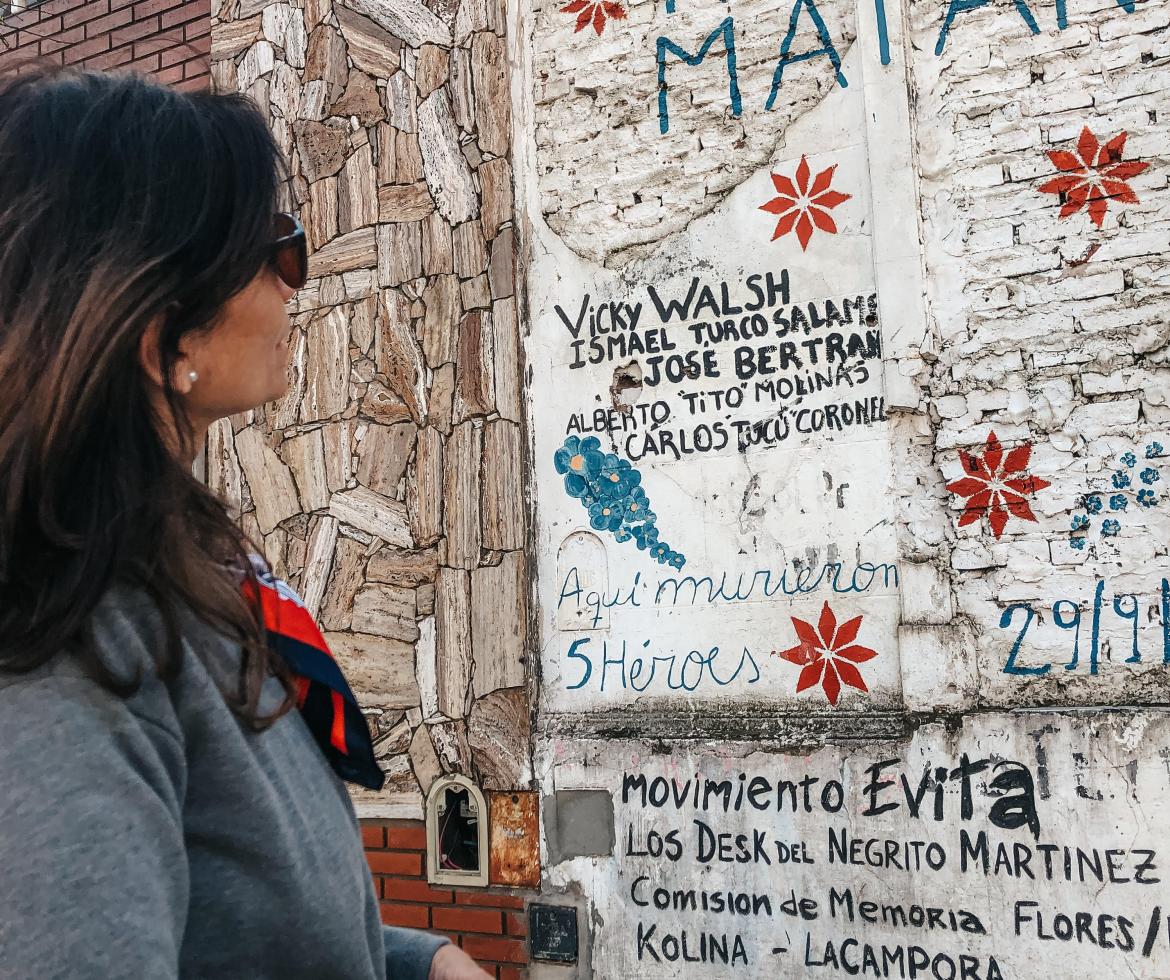 MATAN
VICKY WALSH
ISMAEL TURCO SALAME
JOSE BERTRAN
ALBERTO "TITO" MOLINAS
CARLOS TUCU "CORONEL
Aquí murieron
5 Héroes
29/9/
movimiento Evita
LOS DESK DEL NEGRITO MARTINEZ
Comision de Memoria FLORES/
KOLINA - LACAMPORA